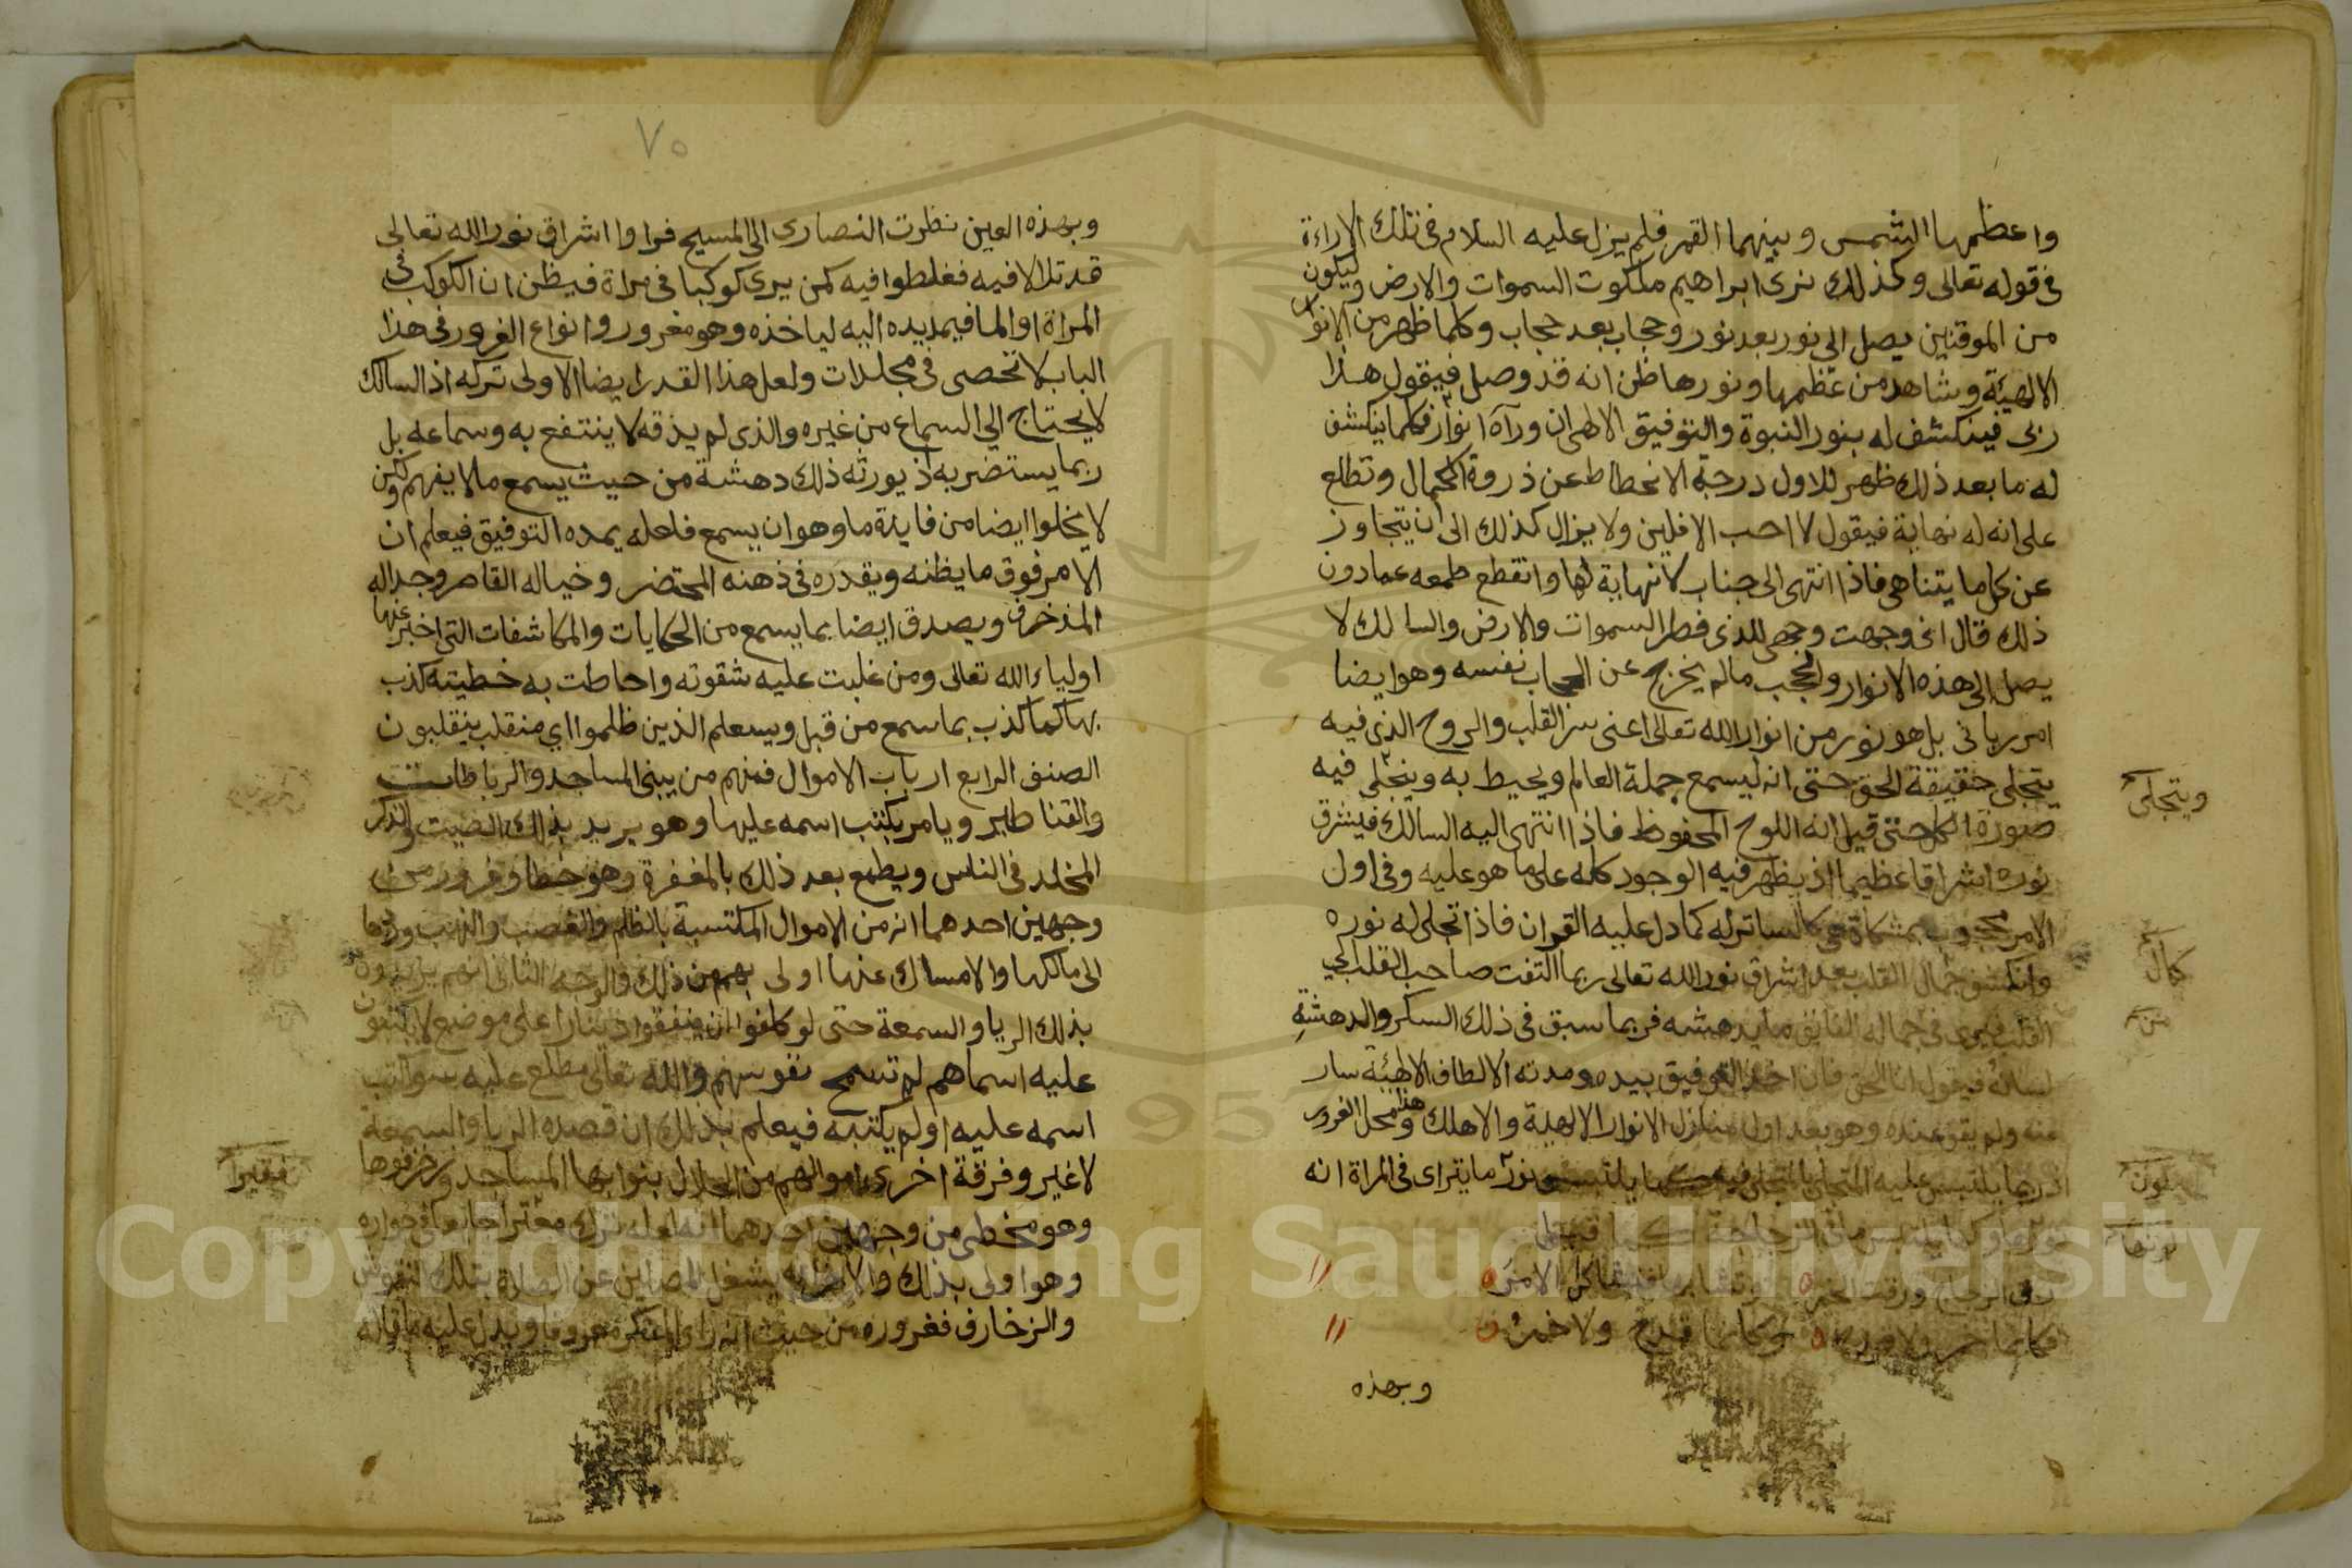 واعظمها الشمس وبينهما القمر فلم يزل عليه السلام فى تلك الاراءة
فى قوله تعالى وكذلك نرى ابراهيم ملكوت السموات والارض وليكون
من الموقنين يصل الى نور بعد نور وحجاب بعد حجاب وكلما ظهر من الانوار
الالهية وشاهد من عظمها ونورها ظن انه قد وصل فيقول هذا
ربى فينكشف له بنور النبوة والتوفيق الالهى ان ورآه انوار فكلما ينكشف
له ما بعد ذلك ظهر للاول درجة الانحطاط عن ذروة الكمال وتطلع
على انه له نهاية فيقول لا احب الافلين ولا يزال كذلك الى ان يتجاوز
عن كل ما يتناهى فاذا انتهى الى جناب لا نهاية لها وانقطع طمعه عما دون
ذلك قال انى وجهت وجهى للذى فطر السموات والارض والسالك لا
يصل الى هذه الانوار والحجب ما لم يخرج عن الحجاب نفسه وهو ايضا
امر ربانى بل هو نور من انوار الله تعالى اعنى سر القلب والروح الذى فيه
يتجلى حقيقة الحق حتى انه ليسمع جملة العالم ويحيط به وينجلى فيه
ويتجلى
صورة الكل حتى قيل انه اللوح المحفوظ فاذا انتهى اليه السالك فيشرق
نوره اشراقا عظيما اذ يظهر فيه الوجود كله على ما هو عليه وفى اول
الامر محجوب بمشكاة هى كالساتر له كما دل عليه القران فاذا تجلى له نوره
وانكشف جمال القلب بعد اشراق نور الله تعالى ربما التفت صاحب القلب الى
كمال
القلب فيرى فى جماله الفايق ما يدهشه فربما سبق فى ذلك السكر والدهشة
من
لسانه فيقول انا الحق فان اخذ التوفيق بيده ومدته الالطاف الالهيئة سار
عنه ولم يقف عنده وهو بعد اول منازل الانوار الالهية والا هلك وهذا محل الغرور
اذ ربما يلتبس عليه المتجلى بالمتجلى فيه كما يلتبس نور ما يتراى فى المراة انه
لون
رق الزجاج ورقت الخمر فتشابها فتشاكل الامر
فكانما خمر ولا قدح وكانما قدح ولا خمر
وبهذه
٧٠
وبهذه العين نظرت النصارى الى المسيح فراوا اشراق نور الله تعالى
قد تلالا فيه فغلطوا فيه كمن يرى كوكبا فى مراة فيظن ان الكوكب فى
المراة او الما فيمد يده اليه لياخذه وهو مغرور وانواع الغرور فى هذا
الباب لا تحصى فى مجلدات ولعل هذا القدر ايضا الاولى تركه اذ السالك
لا يحتاج الى السماع من غيره والذى لم يذقه لا ينتفع به وسماعه بل
ربما يستضر به اذ يورثه ذلك دهشة من حيث يسمع ما لا يفهم ولكن
لا يخلوا ايضا من فايدة ما وهو ان يسمع فلعله يمده التوفيق فيعلم ان
الامر فوق ما يظنه ويقدره فى ذهنه المختصر وخياله القاصر وجداله
المذخرف ويصدق ايضا بما يسمع من الحكايات والمكاشفات التى اخبر عنها
اولياء الله تعالى ومن غلبت عليه شقوته واحاطت به خطيته كذب
بها كما كذب بما سمع من قبل وسيعلم الذين ظلموا اي منقلب ينقلبون
الصنف الرابع ارباب الاموال فمنهم من يبنى المساجد والرباطات
والقناطير ويامر بكتب اسمه عليها وهو يريد بذلك الصيت والذكر
المخلد فى الناس ويطمع بعد ذلك بالمغفرة وهو خطا وغرور من
وجهين احدهما انه من الاموال المكتسبة بالظلم والغصب والنهب وردها
الى مالكها والامساك عنها اولى بهم من ذلك والوجه الثانى انهم يريدون
بذلك الريا والسمعة حتى لو كلفوا ان ينفقوا دينارا على موضع لا يكتبون
عليه اسماهم لم تسمح نفوسهم والله تعالى مطلع عليه سوا كتب
اسمه عليه او لم يكتبه فيعلم بذلك ان قصده الريا والسمعة
لا غير وفرقة اخرى اموالهم من الحلال بنوا بها المساجد وزخرفوها
فقيرا
وهو مخطى من وجهين احدهما انه لعله ترك جايعا فى جواره
وهو اولى بذلك والاخر انه يشغل المصلين عن الصلاة بتلك النقوش
والزخارف فغروره من حيث انه راى المنكر معروفا ويدل عليه ما قاله
Copyright © King Saud University